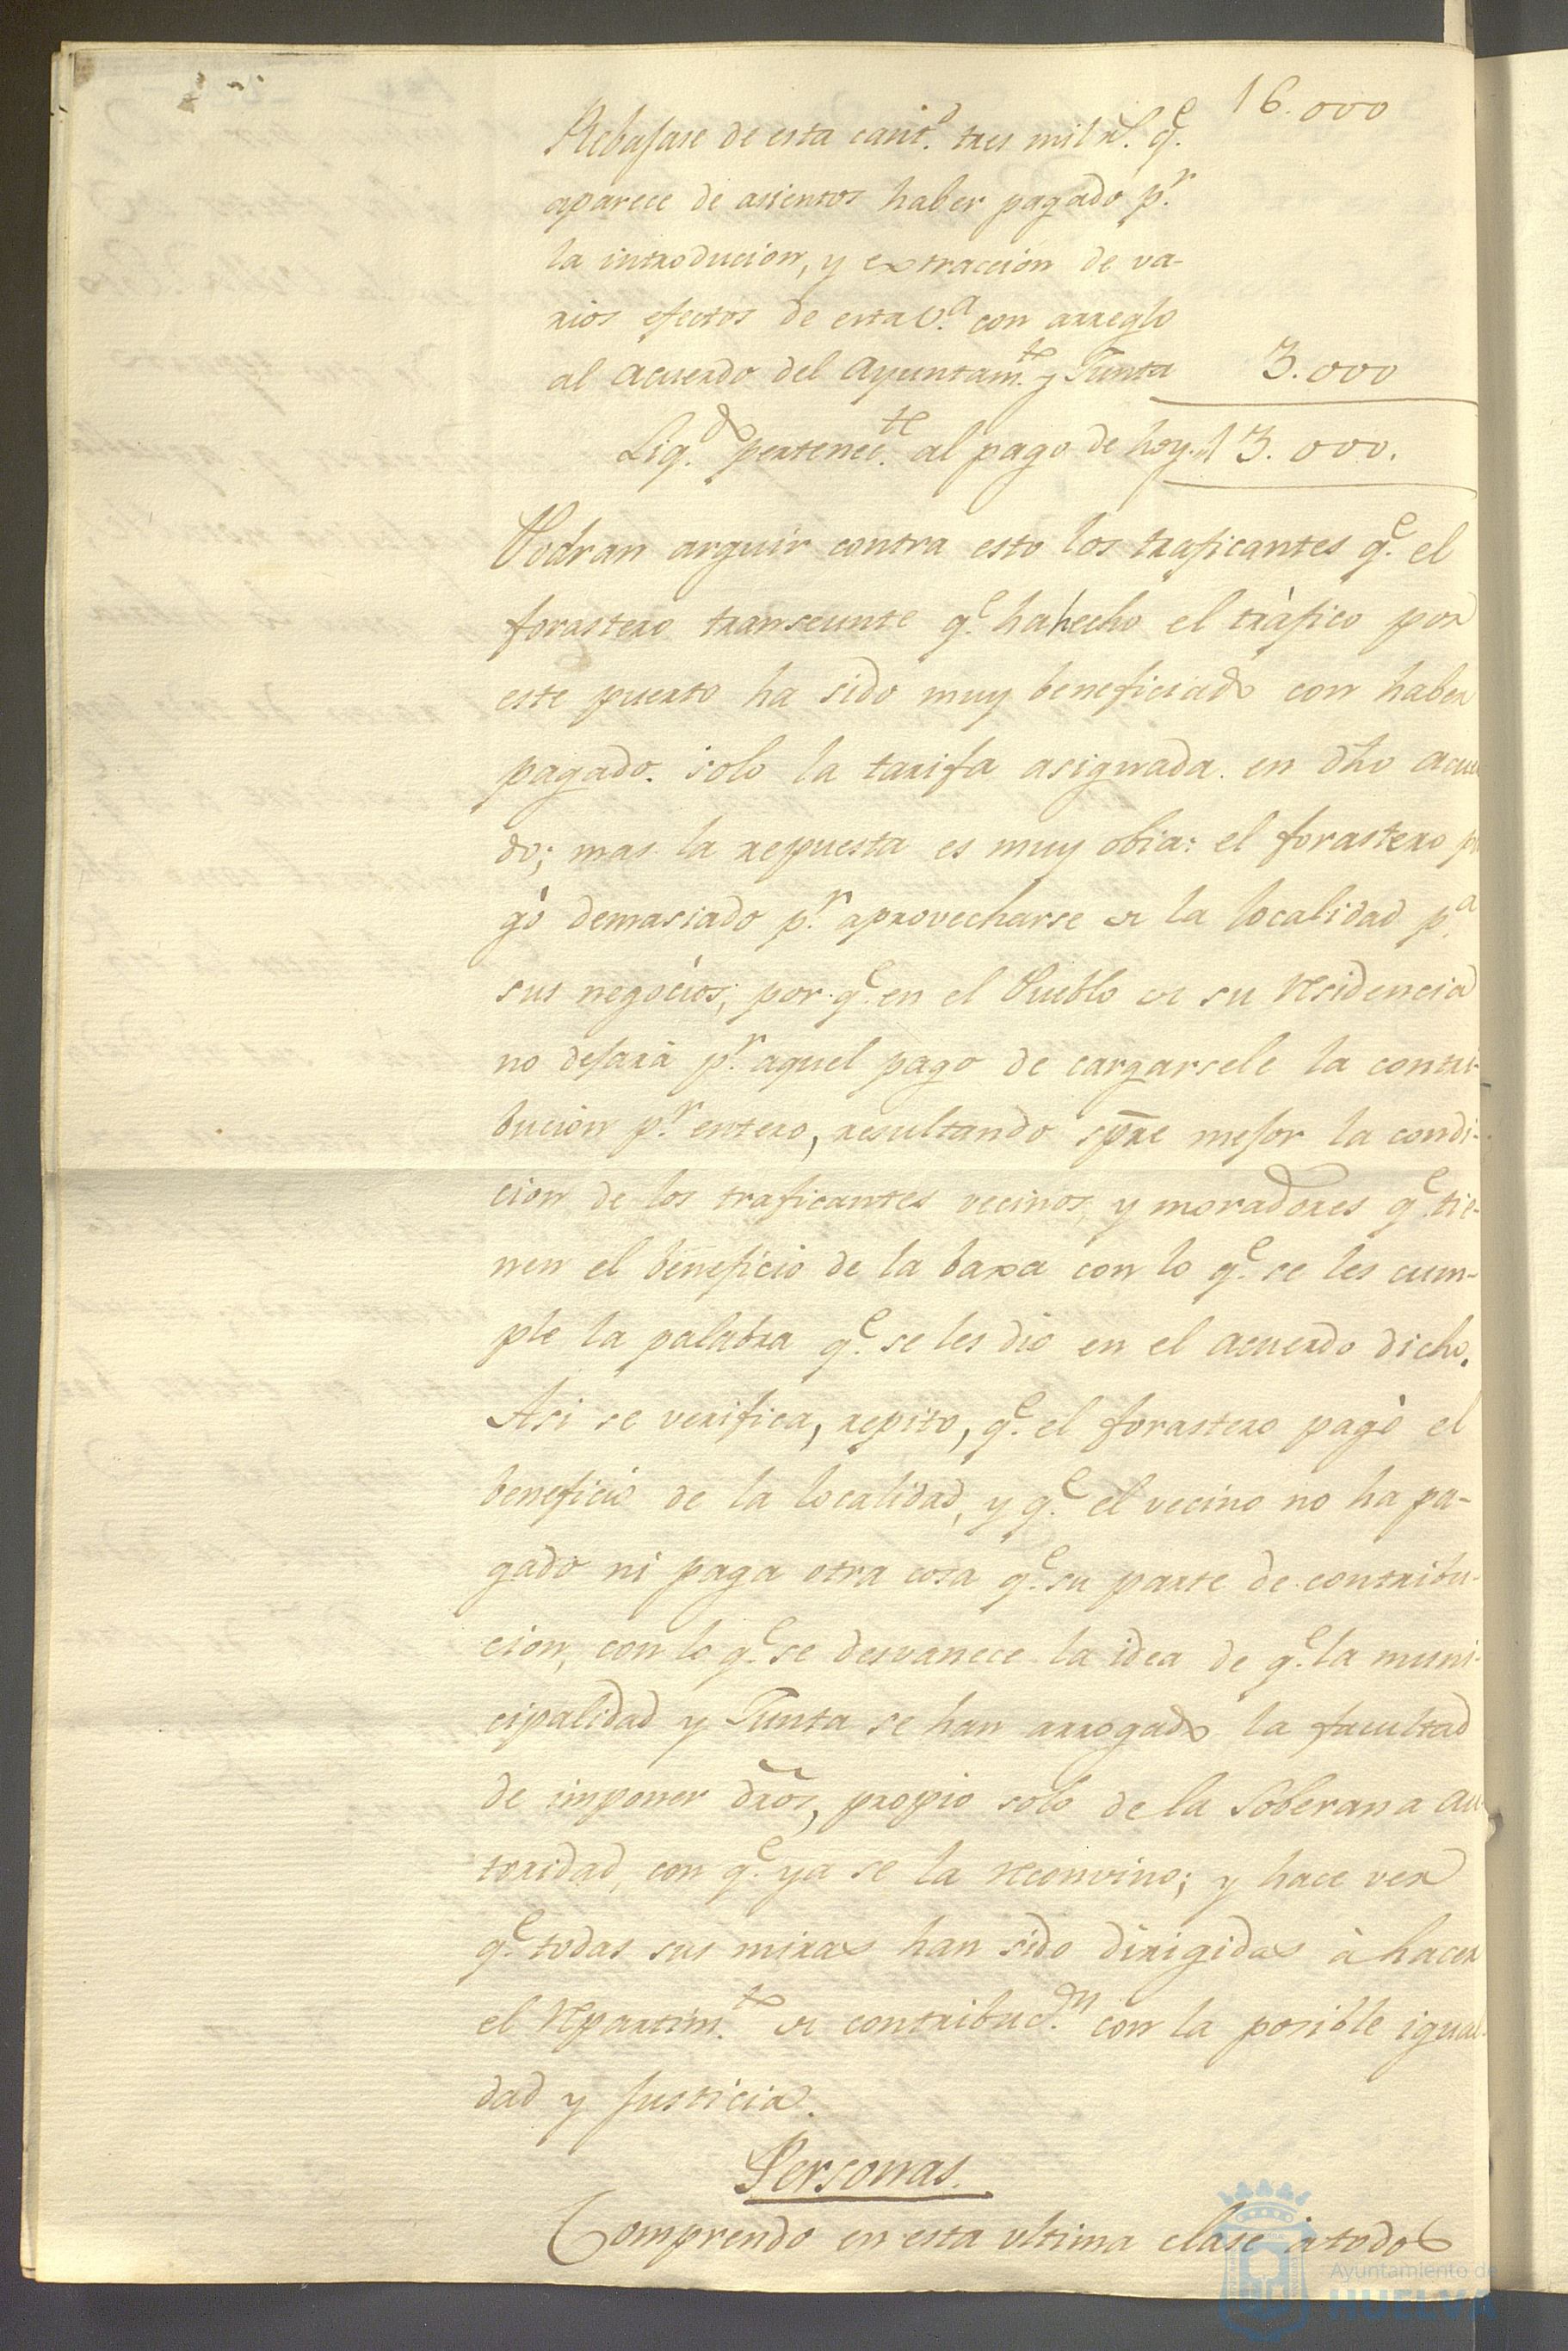 16.000
Rebajase de esta cant.d tres mil r.s q.e
aparece de asientos haber pagado p.r
la introducion, y extraccion de va-
rios efectos de esta V.a con arreglo
al acuerdo del Ayuntam.to y Junta 3.000
Liq.do pertenec.te al pago de hoy. 13.000.
Podran arguir contra esto los traficantes q.e el
forastero transeunte q.e ha hecho el tràfico por
este puerto ha sido muy beneficiado con haber
pagado. solo la tarifa asignada. en dho acuer
do; mas la repuesta es muy obia: el forastero pa
gò demasiado p.r aprovecharse de la localidad p.a
sus negocios; por q.e en el Pueblo de su residencia
no dejarà p.r aquel pago de cargarsele la contri-
bucion p.r entero, resultando spre mejor la condi-
cion de los traficantes vecinos, y moradores q.e tie-
nen el beneficio de la baxa con lo q.e se les cum-
ple la palabra q.e se les dio en el acuerdo dicho.
Asi se verifica, repito, q.e el forastero pagò el
beneficio de la localidad, y q.e el vecino no ha pa-
gado ni paga otra cosa q.e su parte de contribu-
cion, con lo q.e se desvanece la idea de q.e la muni-
cipalidad y Junta se han arrogado la facultad
de imponer dros, propio solo de la Soberana au
toridad, con q.e ya se la reconvino; y hace ver
q.e todas sus miras han sido dirigidas à hacer
el repartim.to de contribuc.on con la posible igual-
dad y Justicia.
Personas.
Comprendo en esta ultima clase à todos
Ayuntamiento de
HUELVA